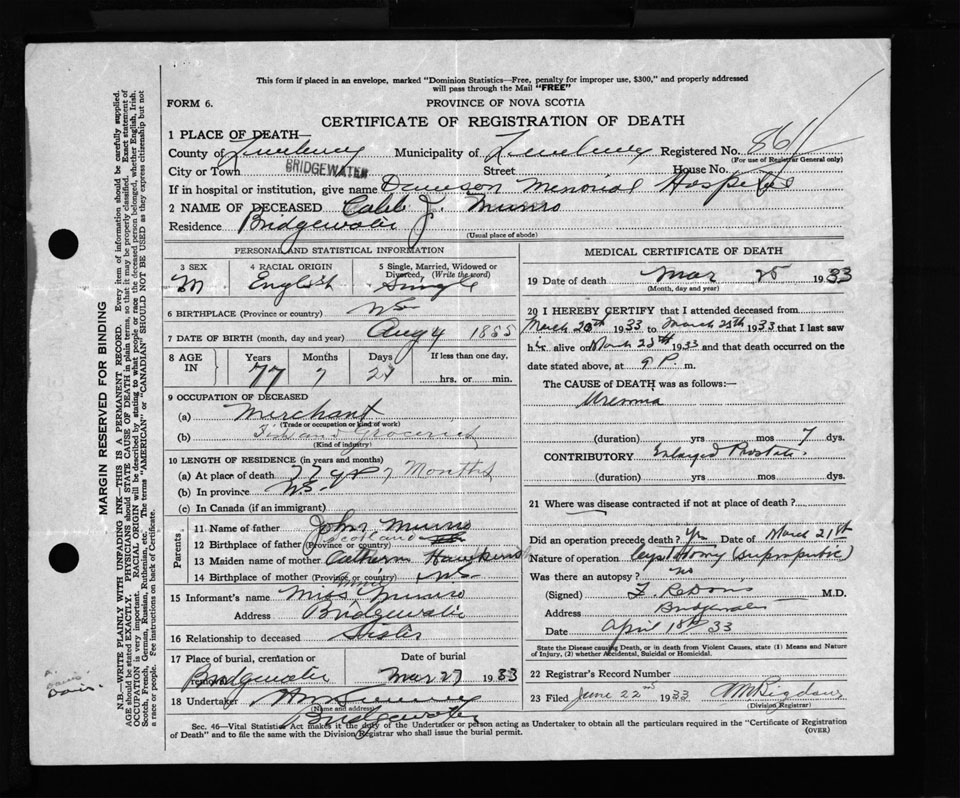 This form if placed in an envelope, marked "Dominion Statistics—Free, penalty for improper use, $300," and properly addressed
will pass through the Mail "FREE"
FORM 6.
PROVINCE OF NOVA SCOTIA
CERTIFICATE OF REGISTRATION OF DEATH
1 PLACE OF DEATH—
County of Lunenburg Municipality of Lunenburg Registered No. 861
(For use of Registrar General only)
City or Town BRIDGEWATER Street House No.
If in hospital or institution, give name Dawson Memorial Hospital
2 NAME OF DECEASED Caleb J. Munro
Residence Bridgewater
(Usual place of abode)
PERSONAL AND STATISTICAL INFORMATION
3 SEX M
4 RACIAL ORIGIN English
5 Single, Married, Widowed or Divorced, (Write the word) Single
6 BIRTHPLACE (Province or country) NS
7 DATE OF BIRTH (month, day and year) Aug 4 1855
8 AGE IN Years 77 Months 7 Days 21 If less than one day, hrs. or min.
9 OCCUPATION OF DECEASED
(a) Merchant
(Trade or occupation or kind of work)
(b) Fish and Groceries
(Kind of industry)
10 LENGTH OF RESIDENCE (in years and months)
(a) At place of death 77 yrs 7 Months
(b) In province NS
(c) In Canada (if an immigrant)
Parents
11 Name of father John Munro
12 Birthplace of father (Province or country) Scotland
13 Maiden name of mother Catherine Hawkins
14 Birthplace of mother (Province or country) NS
15 Informant's name Miss Munro
Address Bridgewater
16 Relationship to deceased Sister
17 Place of burial, cremation or removal Bridgewater Date of burial Mar 27 1933
18 Undertaker
(Name and address)
Bridgewater
MEDICAL CERTIFICATE OF DEATH
19 Date of death Mar 25 1933
(Month, day and year)
20 I HEREBY CERTIFY that I attended deceased from
March 20th 1933 to March 25th 1933 that I last saw
h alive on March 1933 and that death occurred on the
date stated above, at 9 P. m.
The CAUSE of DEATH was as follows:—
Uremia
(duration) yrs mos 7 dys.
CONTRIBUTORY Enlarged Prostate.
(duration) yrs mos dys.
21 Where was disease contracted if not at place of death?
Did an operation precede death? Yes Date of March 21st
Nature of operation Cystotomy (suprapubic)
Was there an autopsy? no
(Signed) M.D.
Address Bridgewater
Date April 18th 33
State the Disease causing Death, or in death from Violent Causes, state (1) Means and Nature
of Injury, (2) whether Accidental, Suicidal or Homicidal.
22 Registrar's Record Number
23 Filed June 22nd 1933
(Division Registrar)
Sec. 46—Vital Statistics Act makes it the duty of the Undertaker or person acting as Undertaker to obtain all the particulars required in the "Certificate of Registration
of Death" and to file the same with the Division Registrar who shall issue the burial permit.
(OVER)
MARGIN RESERVED FOR BINDING
N.B.—WRITE PLAINLY WITH UNFADING INK—THIS IS A PERMANENT RECORD. Every item of information should be carefully supplied.
AGE should be stated EXACTLY. PHYSICIANS should STATE CAUSE OF DEATH in plain terms, so that it may be properly classified. Exact statement of
OCCUPATION is very important. RACIAL ORIGIN will be described by stating to what people or race the deceased person belonged, whether English, Irish,
Scotch, French, German, Russian, Ruthenian, etc. The terms "AMERICAN" or "CANADIAN" SHOULD NOT BE USED as they express citizenship but not
a race or people. See instructions on back of Certificate.
Davis.